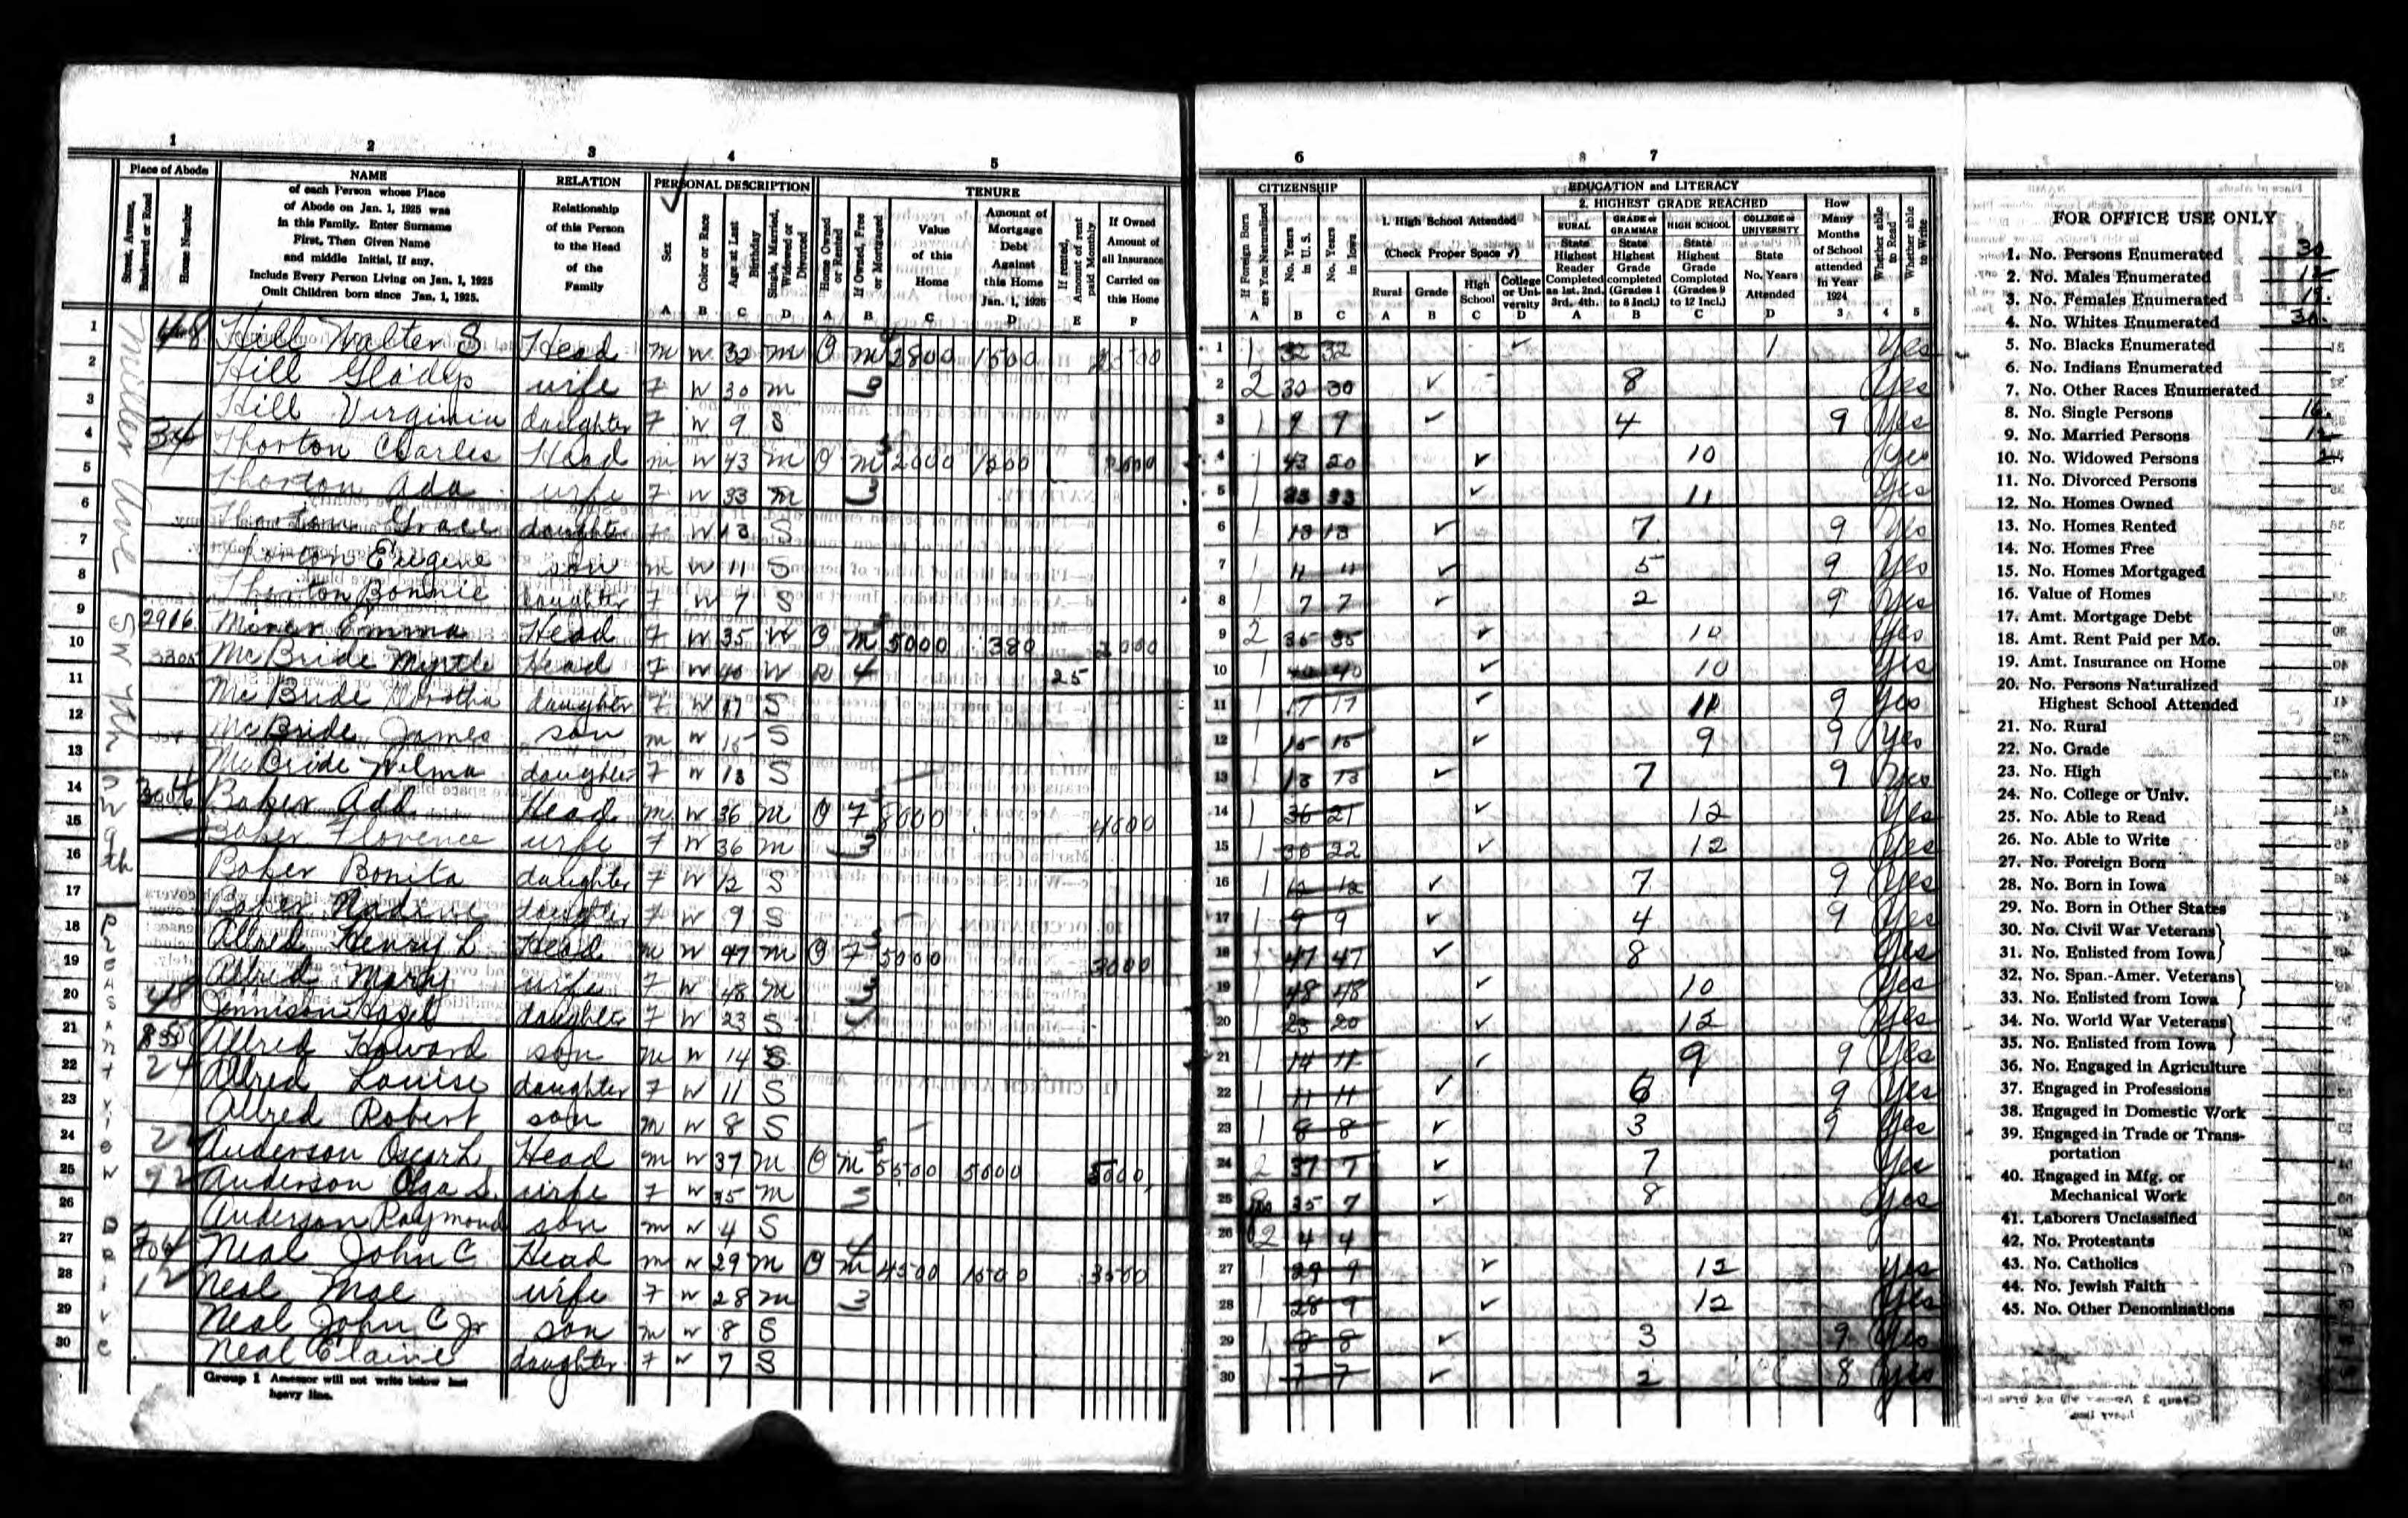 1 2 3 4 5
Place of Abode
Street, Avenue, Boulevard or Road
Home Number
NAME
of each Person whose Place
of Abode on Jan. 1, 1925 was
in this Family. Enter Surname
First, Then Given Name
and middle Initial, If any.
Include Every Person Living on Jan. 1, 1925
Omit Children born since Jan. 1, 1925.
RELATION
Relationship
of this Person
to the Head
of the
Family
PERSONAL DESCRIPTION
Sex
Color or Race
Age at Last Birthday
Single, Married, Widowed or Divorced
TENURE
Home Owned or Rented
If Owned, Free or Mortgaged
Value
of this
Home
Amount of
Mortgage
Debt
Against
this Home
Jan. 1, 1925
If rented, Amount of rent paid Monthly
If Owned
Amount of
all Insurance
Carried on
this Home
A B C D A B C D E F
Miller Ave
SW 9th
Pleasantview Drive
1 Hill Walter S Head m w 32 m O m 2800 1500
2 Hill Gladys wife F w 30 m 3
3 Hill Virginia daughter F w 9 S
4 Thorton Charles Head m w 43 m O m 2000 1200
5 Thorton Ada wife F w 33 m 3
6 Thorton Grace daughter F w 13 S
7 Thorton Eugene son m w 11 S
8 Thorton Bonnie daughter F w 7 S
9 2916 Miner Emma Head F w 35 w O m 5000 380 2000
10 3305 McBride Myrtle Head F w 40 w R 4 25
11 McBride daughter F w 17 S
12 McBride James son m w 15 S
13 McBride Wilma daughter F w 13 S
14 Baker Add Head m w 36 m O F 8000 4000
15 Baker Florence wife F w 36 m 3
16 Baker Bonita daughter F w 12 S
17 Baker Nadine daughter F w 9 S
18 Allred Henry L Head m w 47 m O F 5000 3000
19 Allred Mary wife F w 48 m 3
20 Jennison Hazel daughter F w 23 S
21 Allred Howard son m w 14 S
22 24 Allred Louise daughter F w 11 S
23 Allred Robert son m w 8 S
24 Anderson Oscar L Head m w 37 m O m 5500 5000 5000
25 92 Anderson Olga S. wife F w 35 m 3
26 Anderson Raymond son m w 4 S
27 Neal John C Head m w 29 m O m 4500 1500 3500
28 12 Neal Mae wife F w 28 m 3
29 Neal John C Jr son m w 8 S
30 Neal Elaine daughter F w 7 S
Group 1 Assessor will not write below last
heavy line.
6 8 7
CITIZENSHIP
If Foreign Born are You Naturalized
No. Years in U.S.
No. Years in Iowa
EDUCATION and LITERACY
1. High School Attended
(Check Proper Space ✓)
Rural
Grade
High School
College or University
2. HIGHEST GRADE REACHED
RURAL
State Highest Reader Completed as 1st. 2nd. 3rd. 4th.
GRADE or GRAMMAR
State Highest Grade completed (Grades 1 to 8 Incl.)
HIGH SCHOOL
State Highest Grade Completed (Grades 9 to 12 Incl.)
COLLEGE or UNIVERSITY
State No. Years Attended
How Many Months of School attended in Year 1924
Whether able to Read
Whether able to Write
A B C A B C D A B C D 3 4 5
1 1 32 32 ✓ 1 Yes
2 2 30 30 ✓ 8 Yes
3 1 9 9 ✓ 4 9 Yes
4 1 43 20 ✓ 10 Yes
5 1 33 33 ✓ 11 Yes
6 1 13 13 ✓ 7 9 Yes
7 1 11 11 ✓ 5 9 Yes
8 1 7 7 ✓ 2 9 Yes
9 2 35 35 ✓ 10 Yes
10 1 40 40 ✓ 10 Yes
11 1 17 17 ✓ 11 9 Yes
12 1 15 15 ✓ 9 9 Yes
13 1 13 13 ✓ 7 9 Yes
14 1 36 21 ✓ 12 Yes
15 1 36 22 ✓ 12 Yes
16 1 12 12 ✓ 7 9 Yes
17 1 9 9 ✓ 4 9 Yes
18 1 47 47 ✓ 8 Yes
19 1 48 48 ✓ 10 Yes
20 1 23 20 ✓ 12 Yes
21 1 14 14 ✓ 9 9 Yes
22 1 11 11 ✓ 6 9 Yes
23 1 8 8 ✓ 3 9 Yes
24 2 37 7 ✓ 7 Yes
25 35 7 ✓ 8 Yes
26 2 4 4
27 1 29 9 ✓ 12 Yes
28 1 28 9 ✓ 12 Yes
29 1 8 8 ✓ 3 9 Yes
30 1 7 7 ✓ 2 8 Yes
FOR OFFICE USE ONLY
1. No. Persons Enumerated 30
2. No. Males Enumerated
3. No. Females Enumerated
4. No. Whites Enumerated 30
5. No. Blacks Enumerated
6. No. Indians Enumerated
7. No. Other Races Enumerated
8. No. Single Persons 16
9. No. Married Persons 12
10. No. Widowed Persons 2
11. No. Divorced Persons
12. No. Homes Owned
13. No. Homes Rented
14. No. Homes Free
15. No. Homes Mortgaged
16. Value of Homes
17. Amt. Mortgage Debt
18. Amt. Rent Paid per Mo.
19. Amt. Insurance on Home
20. No. Persons Naturalized
Highest School Attended
21. No. Rural
22. No. Grade
23. No. High
24. No. College or Univ.
25. No. Able to Read
26. No. Able to Write
27. No. Foreign Born
28. No. Born in Iowa
29. No. Born in Other States
30. No. Civil War Veterans
31. No. Enlisted from Iowa
32. No. Span.-Amer. Veterans
33. No. Enlisted from Iowa
34. No. World War Veterans
35. No. Enlisted from Iowa
36. No. Engaged in Agriculture
37. Engaged in Professions
38. Engaged in Domestic Work
39. Engaged in Trade or Trans-
portation
40. Engaged in Mfg. or
Mechanical Work
41. Laborers Unclassified
42. No. Protestants
43. No. Catholics
44. No. Jewish Faith
45. No. Other Denominations